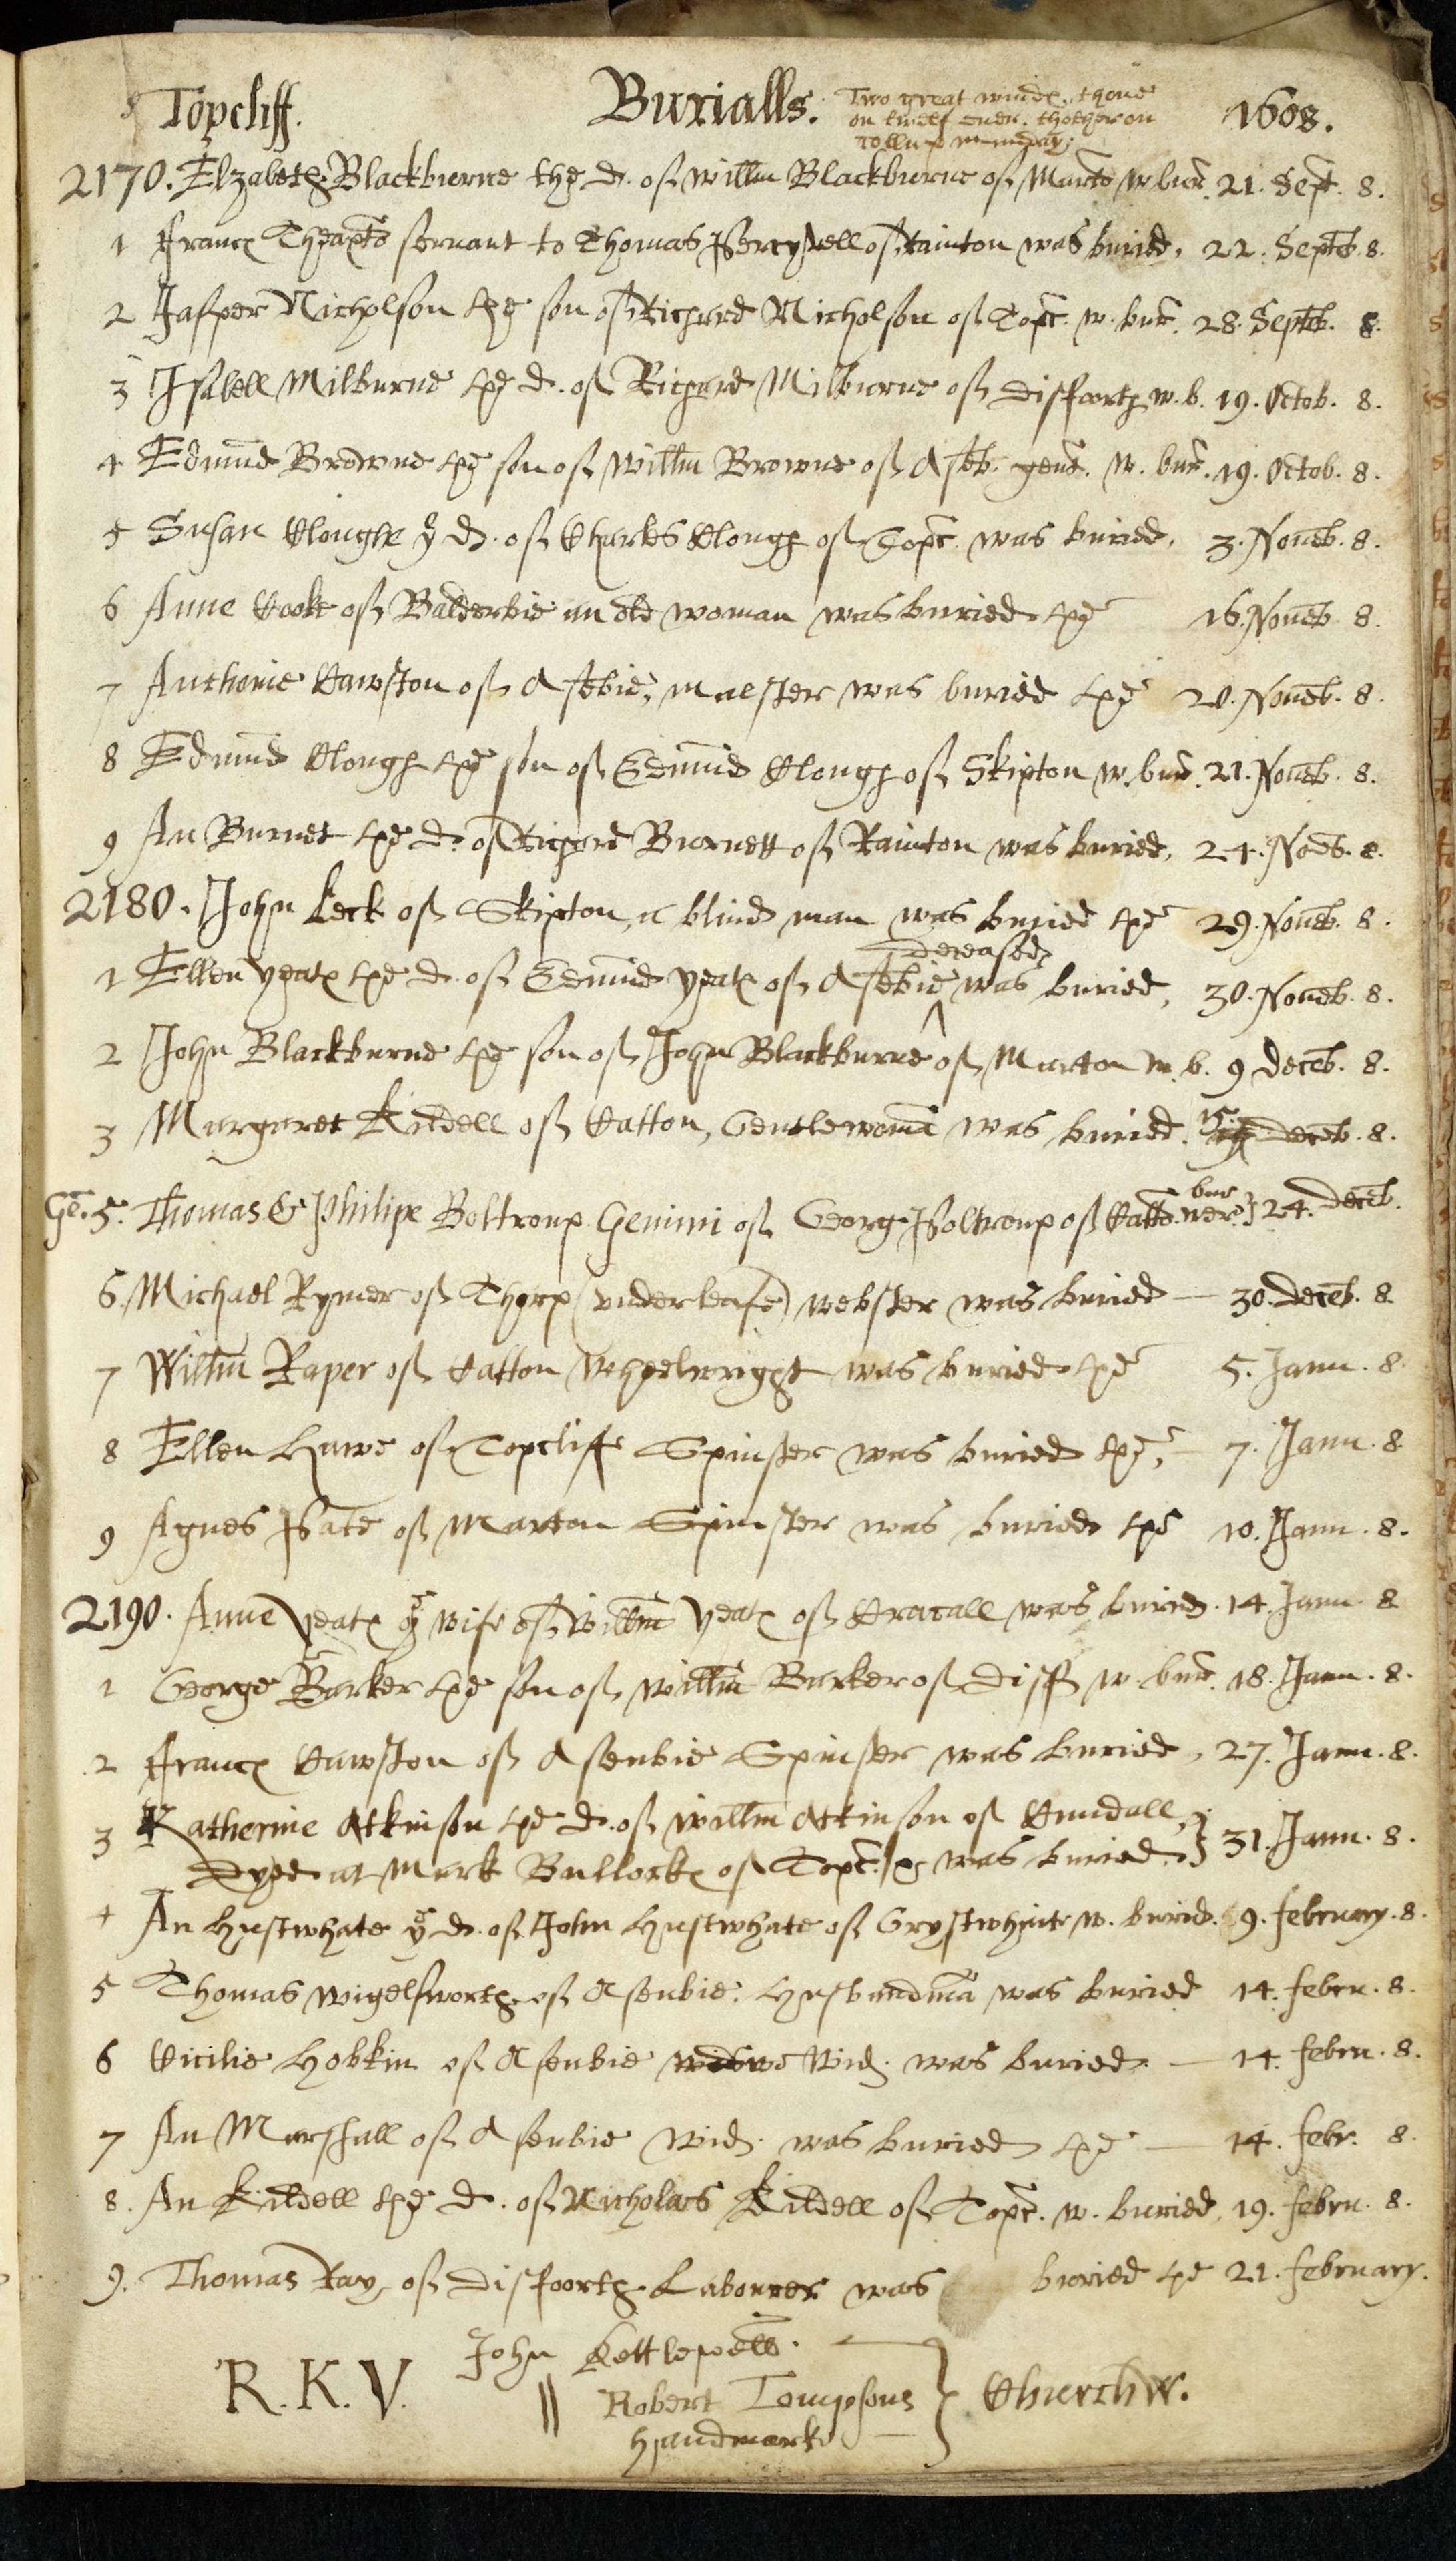 Topcliff. Burialls. 1608.
Two great windx. thone
on twelf euen. thother on
Collup munday:
2170. Elzabeth Blackburne the d. of Willm Blackburne of Marto w. bur. 21. Sept. 8.
1 Francx Theaxto seruant to Thomas of Rainton was buried, 22. Septeb. 8.
2 Jasper Nicholson the son of Richard Nicholson of Topc. w. bur. 28. Septeb. 8.
3 Isabell Milburne the d. of Richard Milburne of Disfoorth w. b. 19. Octob. 8.
4 Edmud Browne the son of Willm Browne of Aseb. gent. w. bur. 19. Octob. 8.
5 Susan Clough ye d. of Charles Clough of Topc. was buried, 3. Noueb. 8.
6 Anne Cooke of Balderbie an old woman was buried the 16. Noueb. 8.
7 Anthonie Cawston of Asebie, was buried the 20. Noueb. 8.
8 Edmud Clough the son of Edmud Clough of Skipton w. bur. 21. Noueb. 8.
9 An Burnet the d. of Richard Burnett of Rainton was buried, 24. Noeb. 8.
2180. John Leck of Skipton, a blind man was buried the 29. Noueb. 8.
deceased
1 Ellen yeatx the d. of Edmud yeatx of Asebie was buried, 30. Noueb. 8.
2 John Blackburne the son of John Blackburne of Marton w. b. 9 Deceb. 8.
3 Margaret Kildell of Catton, Gentlewoma was buried. 15. Deceb. 8.
Ge. 5. Thomas & Philipe Boltroup Gemini of Georg Boltroup of Catto. wer bur } 24. Deceb.
6. Michael Rymer of Thorp (vnderlease) webster was buried — 30. Deceb. 8.
7 Willm Raper of Catton Wheelwright was buried the 5. Janu. 8.
8 Ellen Hawe of Topcliffe Spinster was buried the, 7. Janu. 8.
9 Agnes Bate of Marton Spinster was buried the 10. Janu. 8.
2190. Anne yeatx ye wife of Willm yeatx of Cracall was buried. 14. Janu. 8.
1 George Barker the son of Willm Barker of Disf w. bur. 18. Janu. 8.
2 Francx Cawston of Asenbie Spinster was buried, 27. Janu. 8.
3 Katherine Atkinson the d. of Willm Atkinson of Cundall, } 31. Janu. 8.
Dyed at Mark Bullockx of Topc. & was buried. }
4 An Hustwhate ye d. of John Hustwhate of Grystwhait w. buried. 9. february. 8.
5 Thomas Wigelsworth of Asenbie. Husbandma was buried 14. febru. 8.
6 Cicilie Hobkin of Asenbie Wid. was buried. — 14. febru. 8.
7 An Marshall of Asenbie Wid. was buried the — 14. febr. 8.
8. An Kildell the d. of Nicholas Kildell of Topc. w. buried, 19. febru. 8.
9. Thomas Ray, of Disfoorth Labourer was buried the 21. february.
R. K. V. John Kettlewell.
Robert Tompsons } Churchw.
handmark